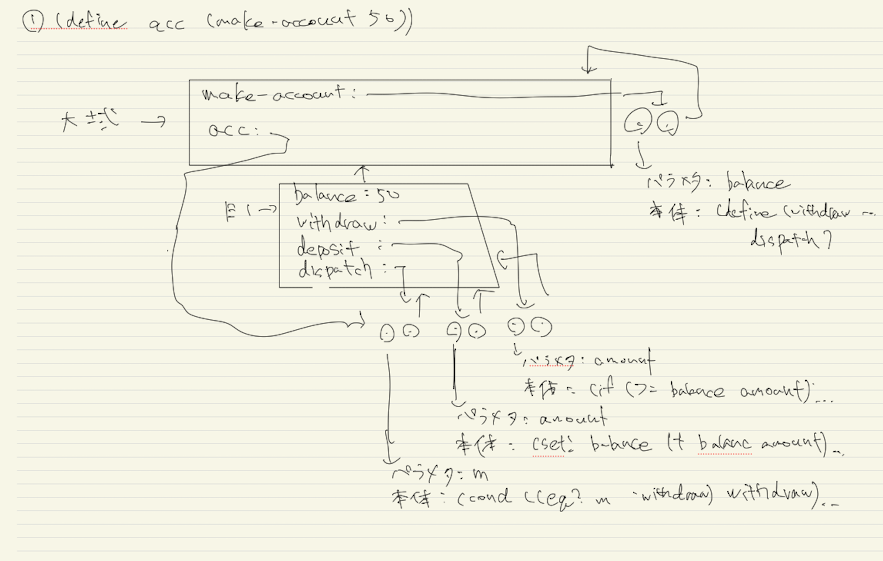 ① (define acc (make-account 50))
make-account :
大域 →
acc :
パラメタ : balance
本体 : (define (withdraw ...
dispatch)
E1 →
balance : 50
withdraw :
deposit :
dispatch :
パラメタ : amount
本体 : (if (>= balance amount) ...
パラメタ : amount
本体 : (set! balance (+ balanc amount) ...
パラメタ : m
本体 : (cond ((eq? m 'withdraw) withdraw) ...